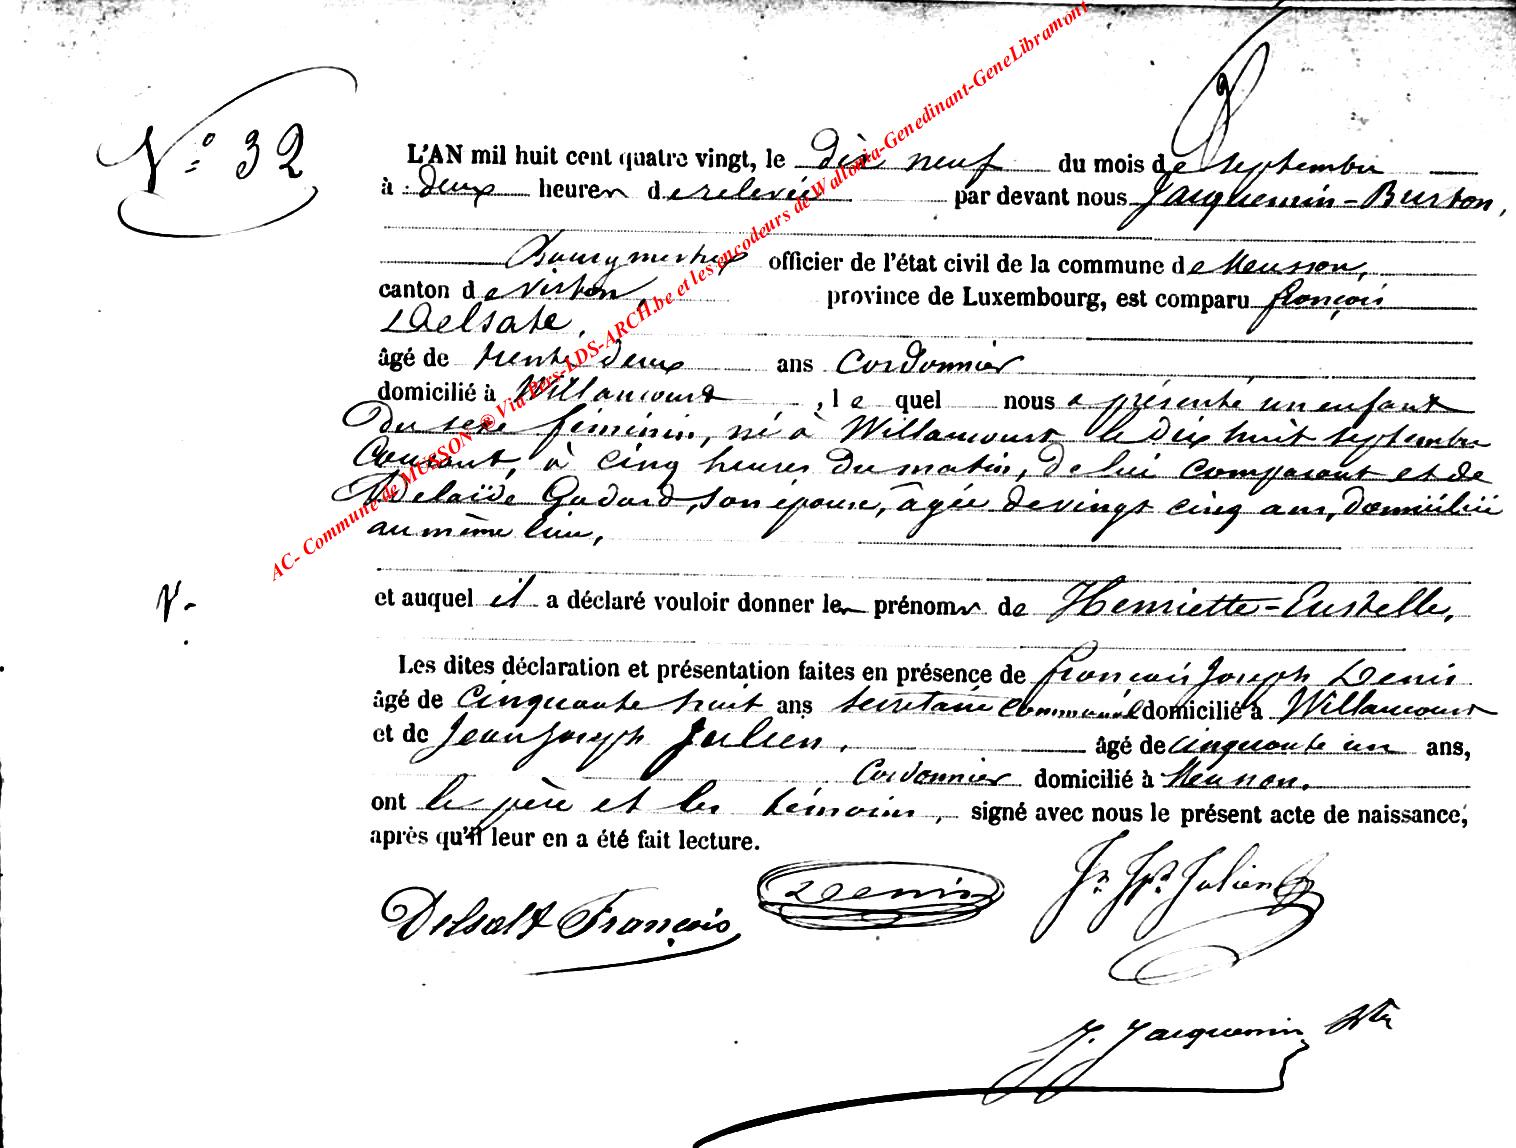 N° 32
L'AN mil huit cent quatre vingt, le dix neuf du mois de septembre
à deux heures de relevée par devant nous Jacquemin-Burton,
Bourgmestre officier de l'état civil de la commune de Musson,
canton de Virton, province de Luxembourg, est comparu françois
Delsate,
âgé de trente deux ans cordonnier
domicilié à Willancourt, le quel nous a présenté un enfant
du sexe féminin, né à Willancourt le dix huit septembre
courant, à cinq heures du matin, de lui comparant et de
Adelaïde Godard, son épouse, âgée de vingt cinq ans, domiciliée
au même lieu,
et auquel il a déclaré vouloir donner les prénoms de Henriette-Eustelle.
V.
Les dites déclaration et présentation faites en présence de françois Joseph Denis
âgé de cinquante huit ans secretaire communal domicilié à Willancourt
et de Jean Joseph Julien, âgé de cinquante un ans,
cordonnier domicilié à Musson.
ont le père et les témoins, signé avec nous le présent acte de naissance,
après qu'il leur en a été fait lecture.
Delsalt François
Denis
Jn Jph Julien
J. Jacquemin Btn
AC- Commune de MUSSON ® Via Pers-LDS-ARCH.be et les encodeurs de Wallonia-Genedinant-GeneLibramont